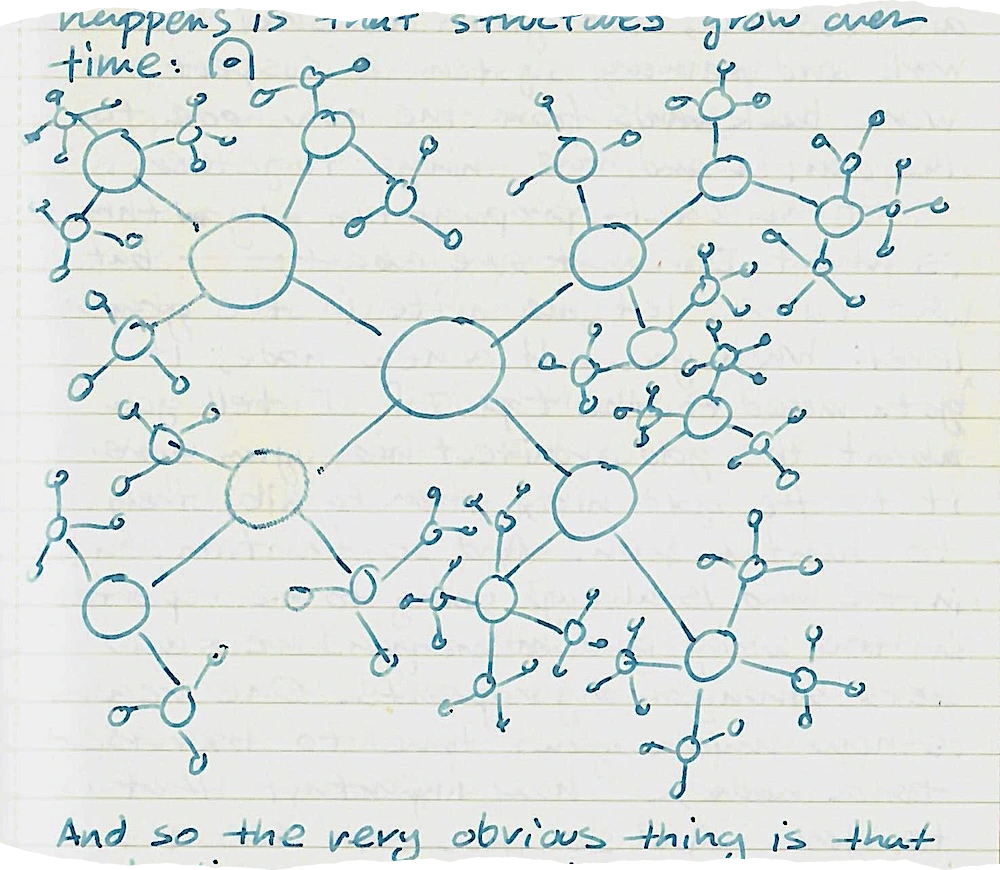 happens is that structures grow over
time:
And so the very obvious thing is that